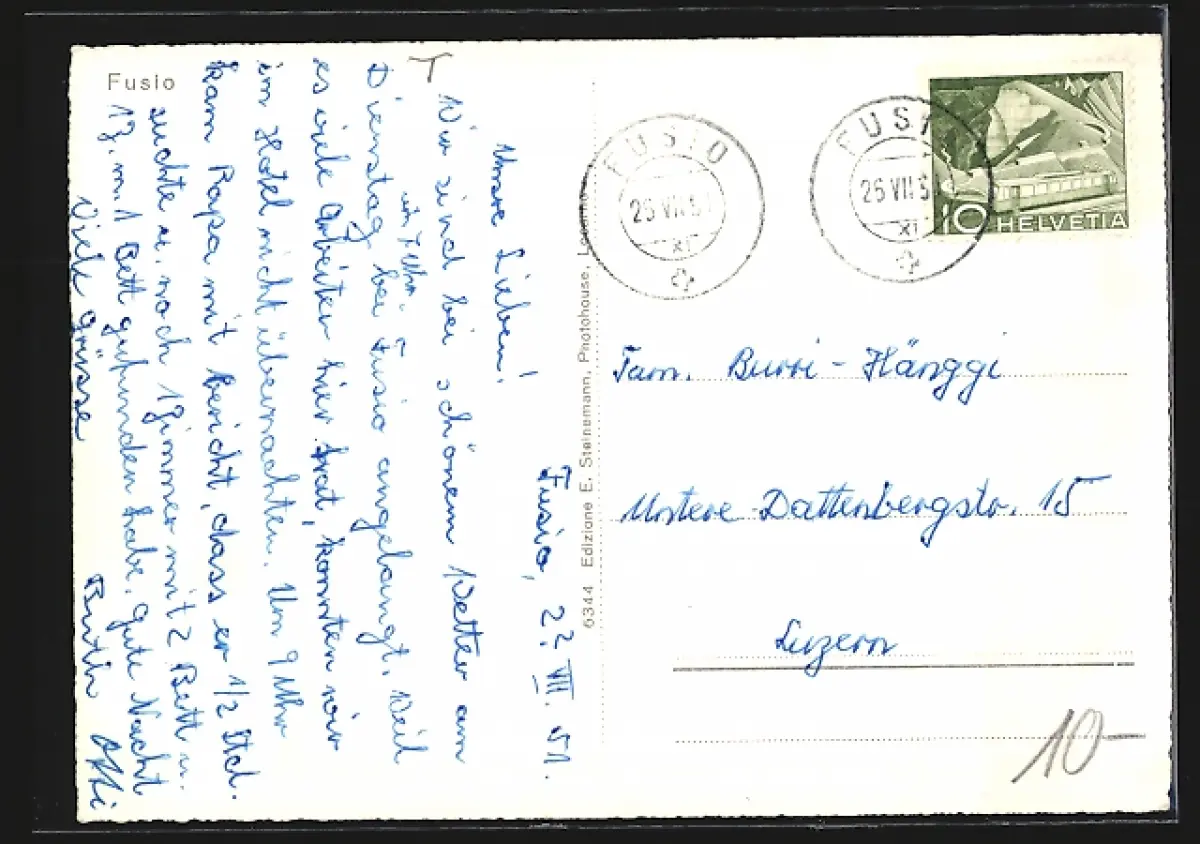 Fusio
Fusio, 22 VII. 51.
Unsre Lieben!
Wir sind bei schönem Wetter am
um 7 Uhr
Dienstag bei Fusio angelangt. Weil
es viele Arbeiter hier hat, konnten wir
im Hotel nicht übernachten. Um 9 Uhr
kam Papa mit bericht, dass er 1/2 Std.
suchte u. noch 1 Zimmer mit 2 Bett u.
1 Z. mit 1 Bett gefunden habe. Gute Nacht
Viele Grüsse
Ruth
6344 Edizione E. Steinemann, Photohouse,
FUSIO
25 VII 5
XI
FUSIO
25 VII 5
XI
10 HELVETIA
Fam. Burri - Hänggi
Untere Dattenbergstr. 15
Luzern
10-